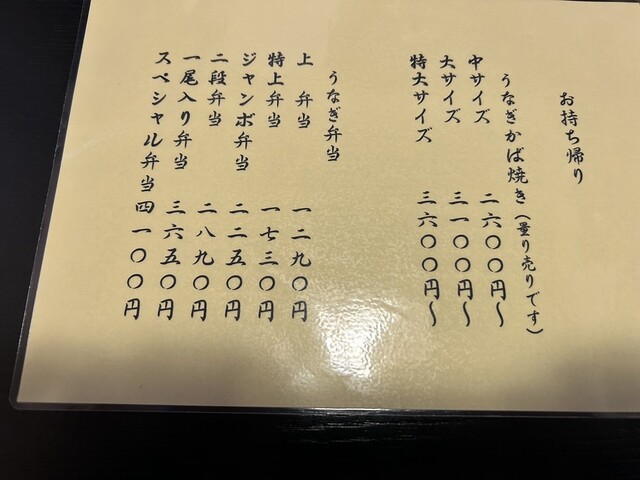 お持ち帰り
うなぎかば焼き(量り売りです)
中サイズ 二六〇〇円〜
大サイズ 三一〇〇円〜
特大サイズ 三六〇〇円〜
うなぎ弁当
上 弁当 一二九〇円
特上弁当 一七三〇円
ジャンボ弁当 二二五〇円
二段弁当 二八九〇円
一尾入り弁当 三六五〇円
スペシャル弁当 四一〇〇円